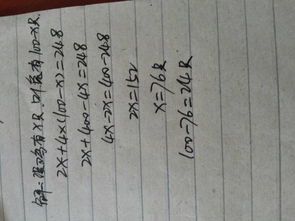 解：设鸡有x只，则兔有100-x只。
2x+4x(100-x)=248
2x+400-4x=248
4x-2x=400-248
2x=152
x=76只
100-76=24只